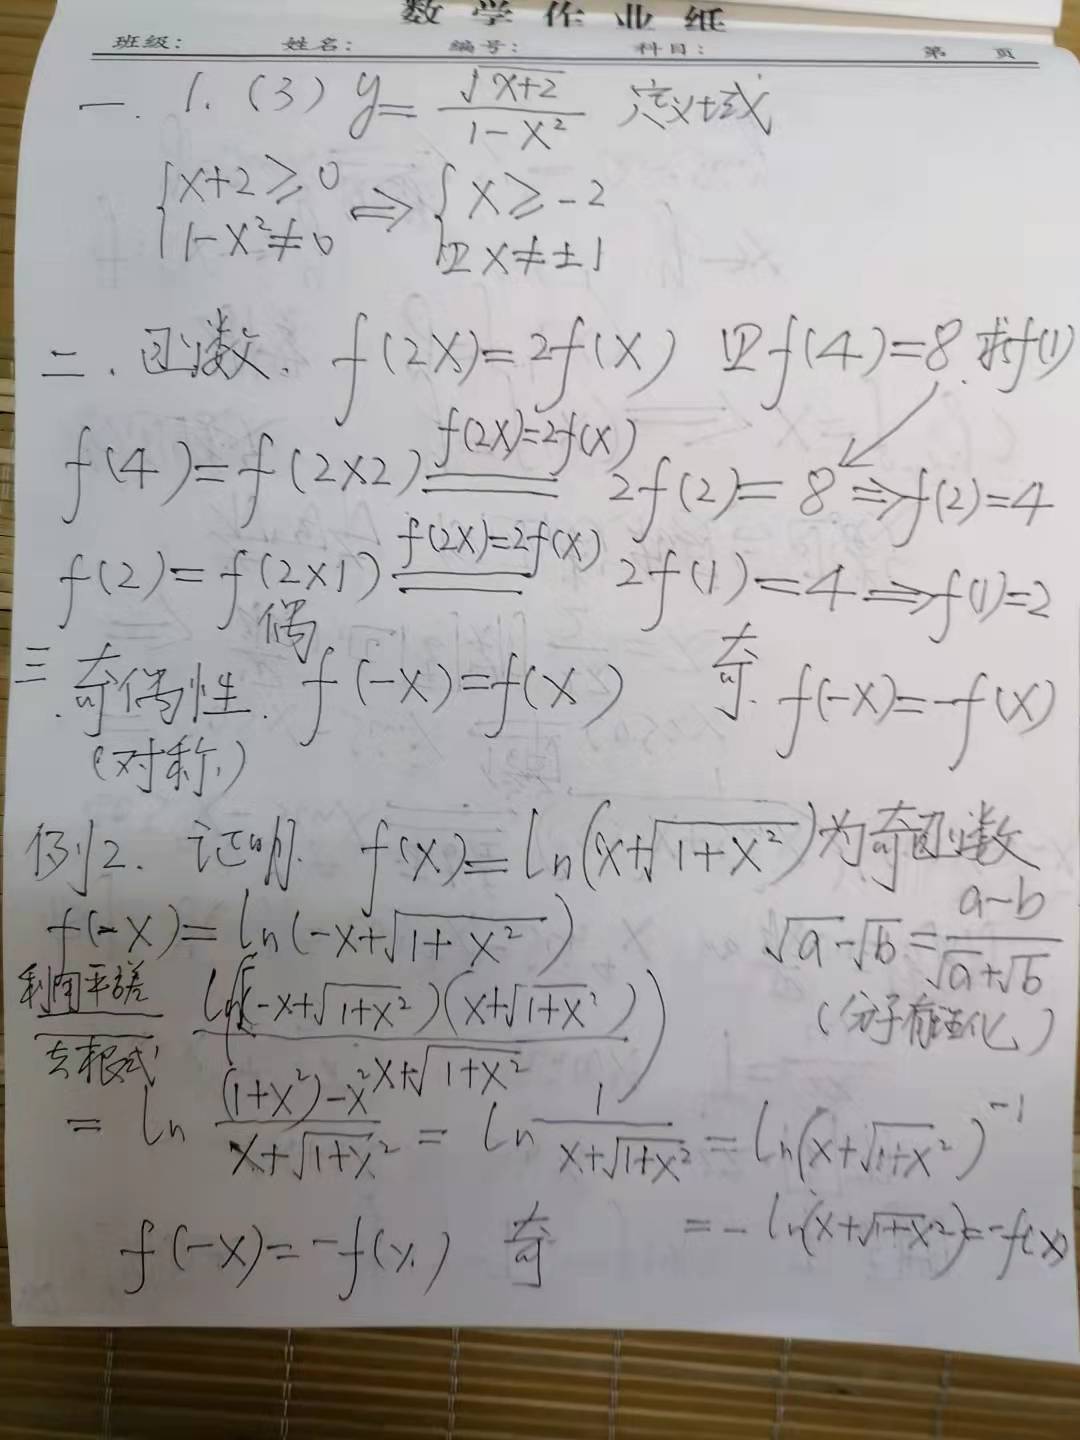 数学作业纸
班级: 姓名: 编号: 科目: 第 页
一. 1. (3) y = √(x+2) / (1-x²) 定义域
{x+2≥0 1-x²≠0 ⇒ {x≥-2 且x≠±1
二. 函数. f(2x)=2f(x) 且f(4)=8.求f(1)
f(4)=f(2×2) f(2x)=2f(x) 2f(2)=8 ⇒f(2)=4
f(2)=f(2×1) f(2x)=2f(x) 2f(1)=4⇒f(1)=2
三. 奇偶性. 偶 f(-x)=f(x) 奇. f(-x)=-f(x)
(对称)
例2. 证明. f(x)=ln(x+√(1+x²))为奇函数
f(-x)=ln(-x+√(1+x²)) √a-√b=(a-b)/(√a+√b)
(分子有理化)
利用平方差 去根式 ln((-x+√(1+x²))(x+√(1+x²)) / (x+√(1+x²)))
= ln ((1+x²)-x²)/(x+√(1+x²)) = ln 1/(x+√(1+x²)) = ln(x+√(1+x²))⁻¹
= - ln(x+√(1+x²))=-f(x)
f(-x)=-f(x) 奇